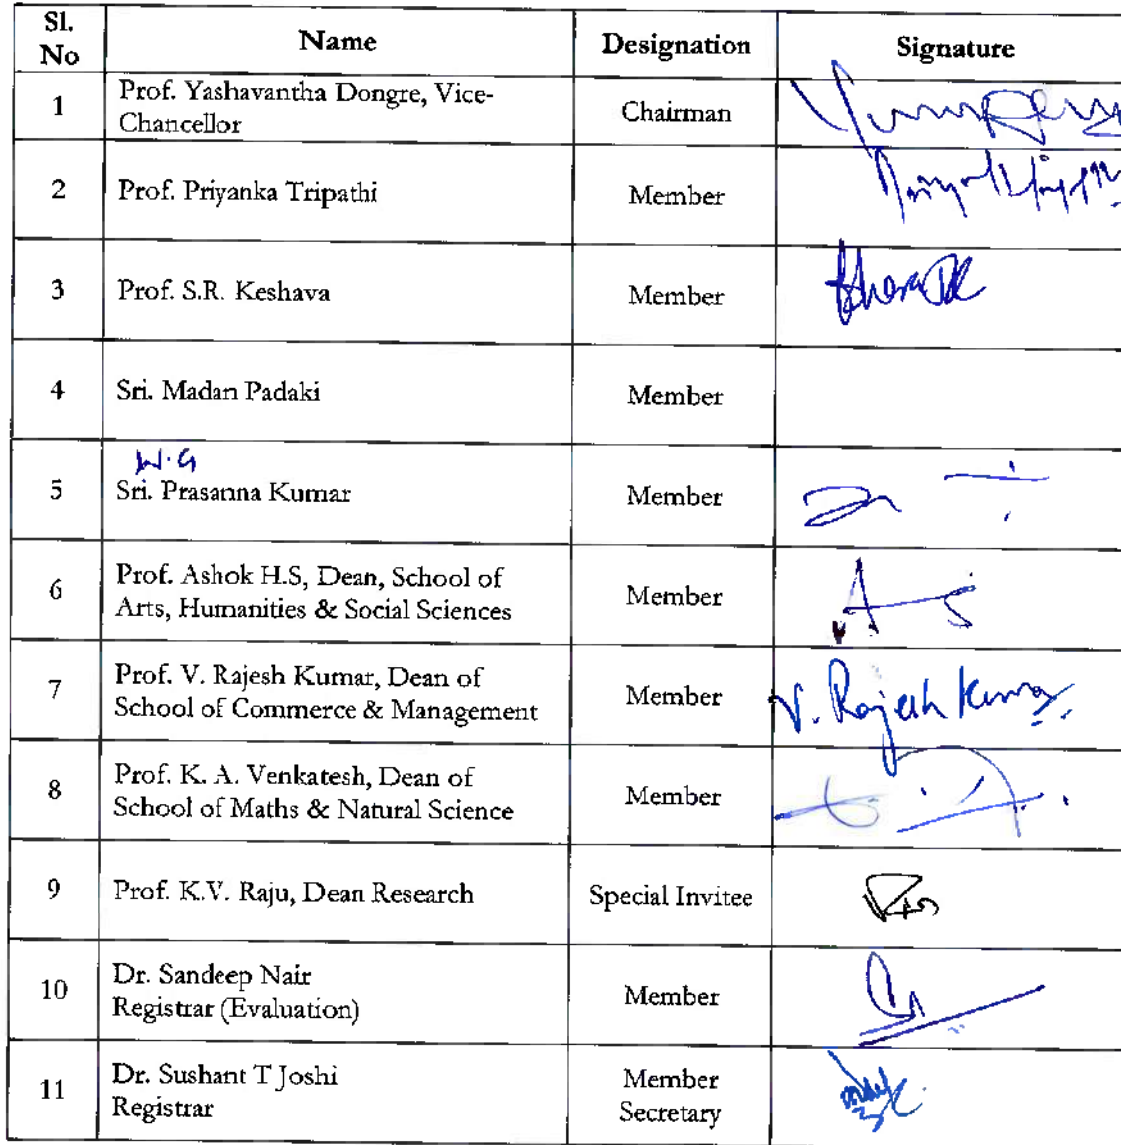 Sl. No Name Designation Signature
1 Prof. Yashavantha Dongre, Vice-
Chancellor Chairman
2 Prof. Priyanka Tripathi Member
3 Prof. S.R. Keshava Member
4 Sri. Madan Padaki Member
5 Sri. Prasanna Kumar Member
6 Prof. Ashok H.S, Dean, School of
Arts, Humanities & Social Sciences Member
7 Prof. V. Rajesh Kumar, Dean of
School of Commerce & Management Member V. Rajesh Kumar
8 Prof. K. A. Venkatesh, Dean of
School of Maths & Natural Science Member
9 Prof. K.V. Raju, Dean Research Special Invitee
10 Dr. Sandeep Nair
Registrar (Evaluation) Member
11 Dr. Sushant T Joshi
Registrar Member Secretary